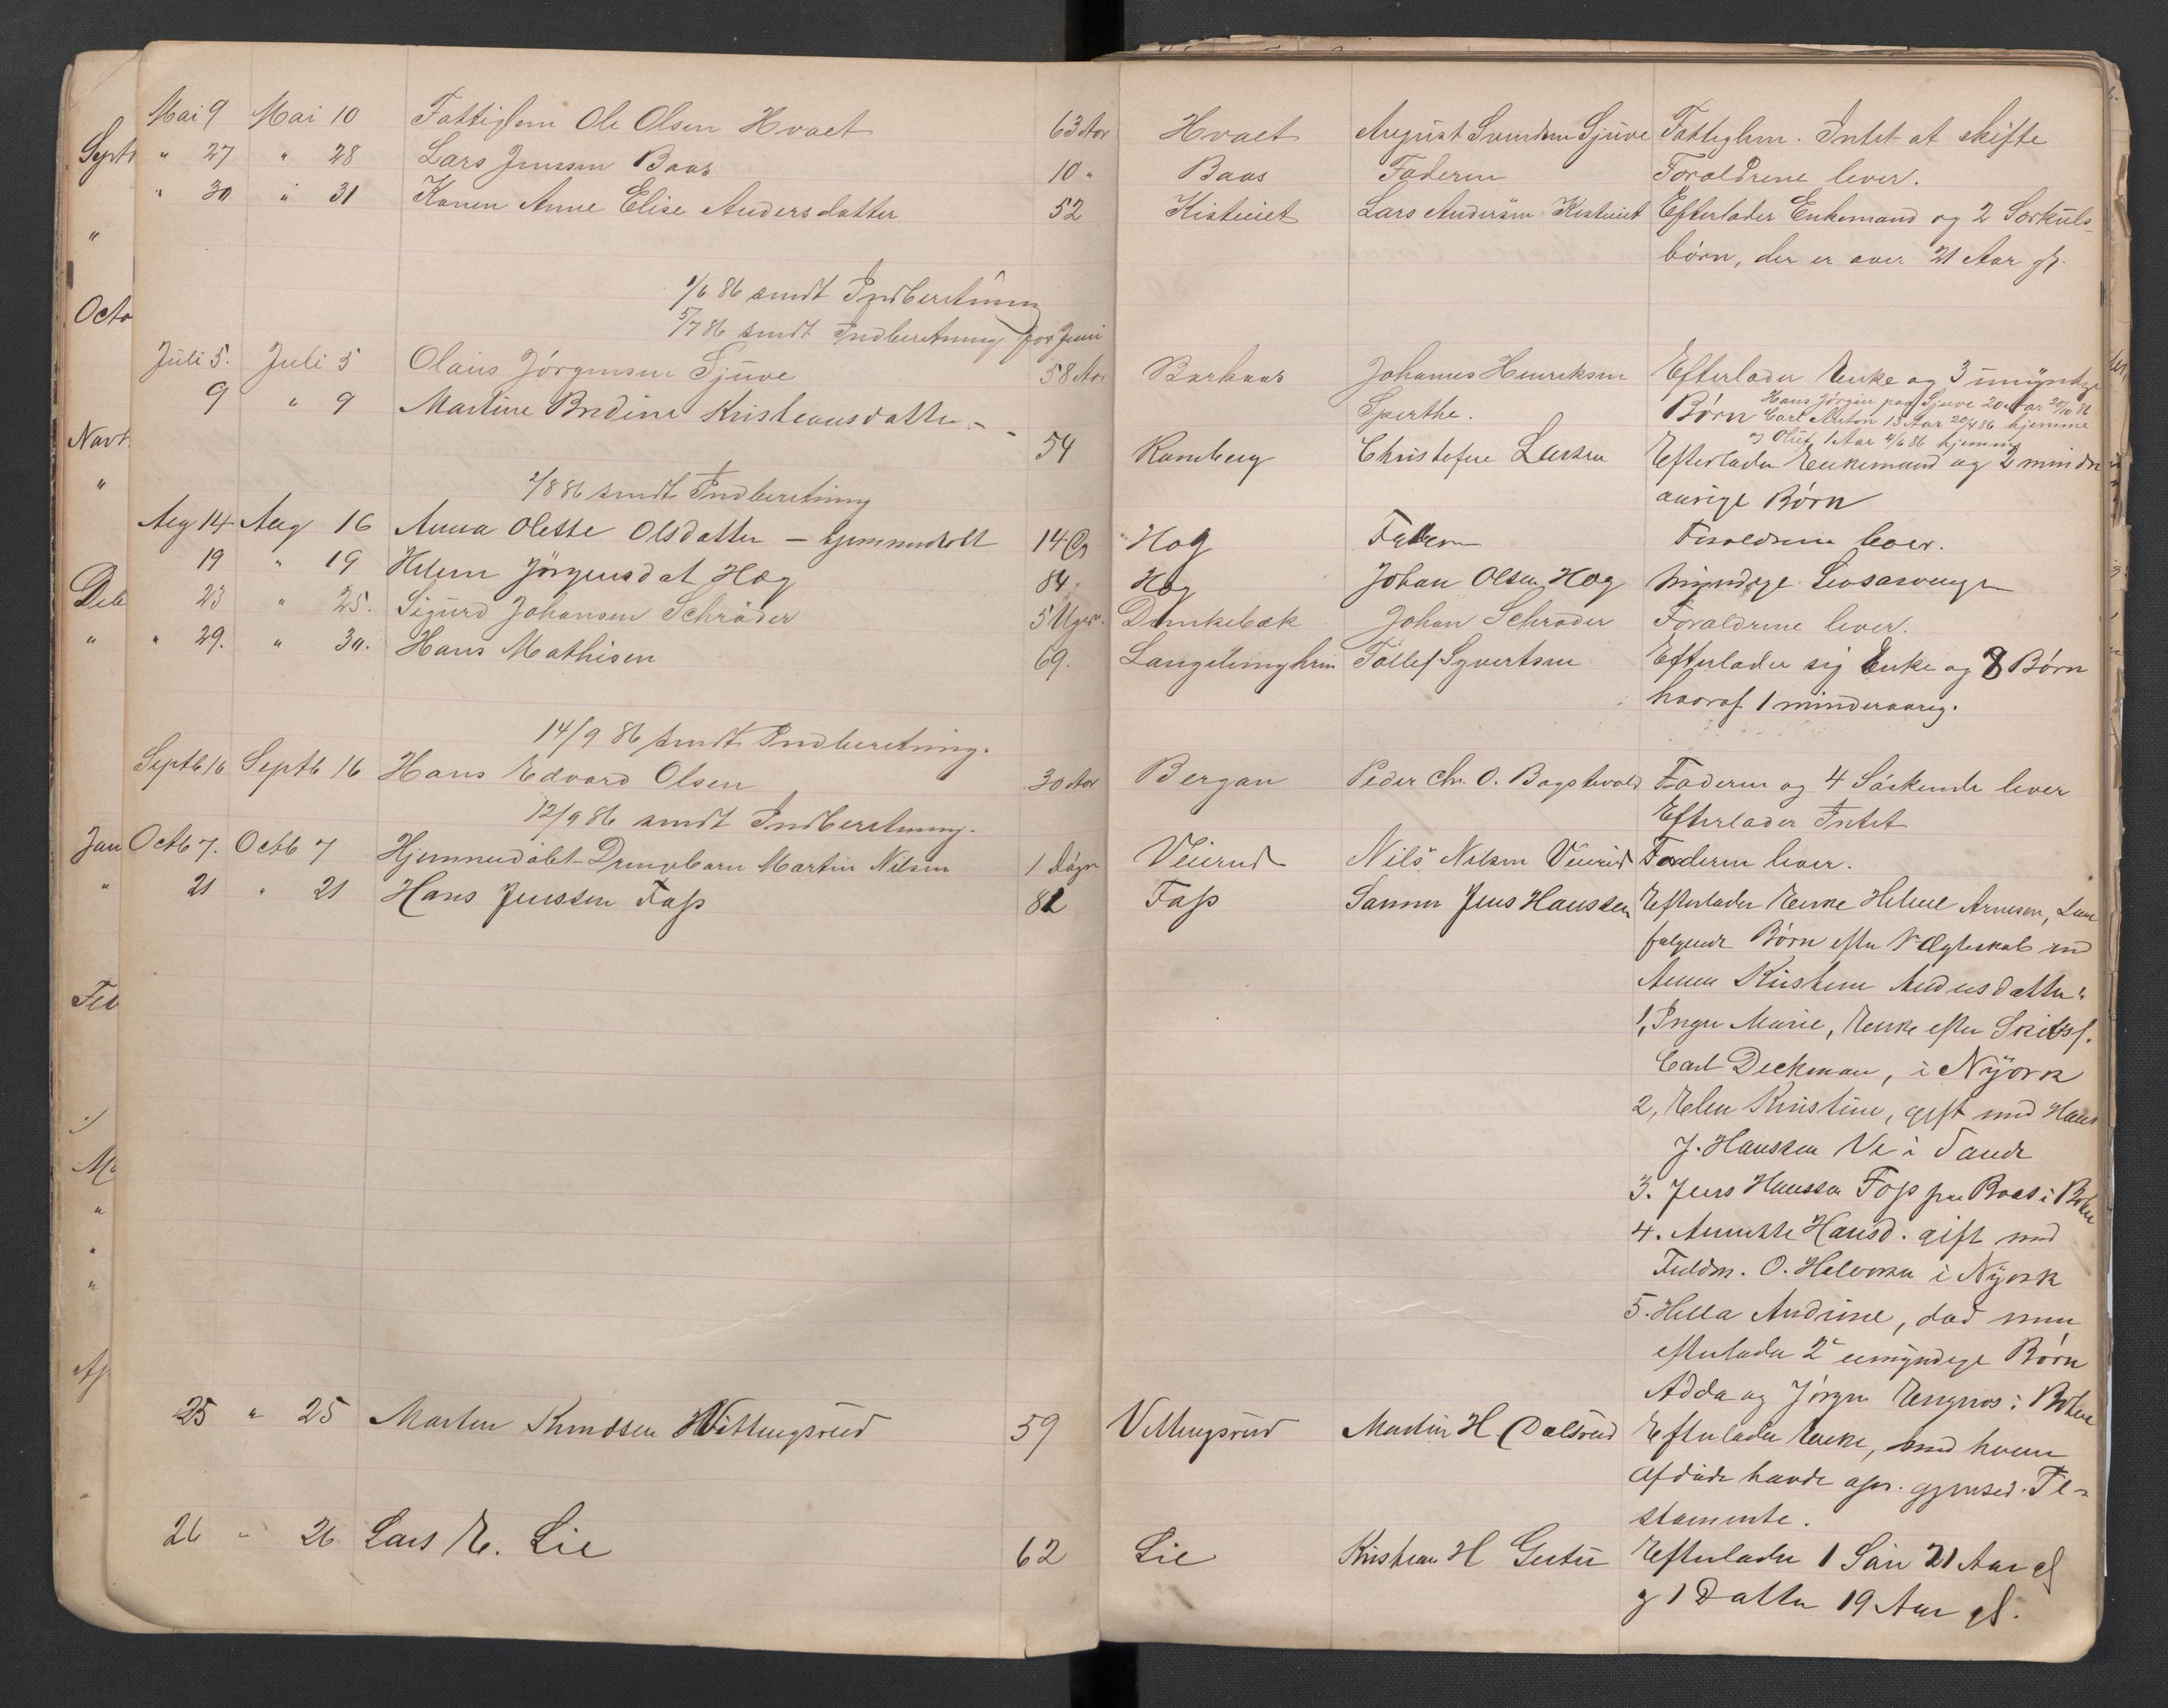 Mai 9 Mai 10 Fattiglem Ole Olsen Hvaet 63 Aar Hvaet August Svendsen Sjuve Fattiglem. Intet at skifte
" 27 " 28 Lars Jenssen Baas 10 " Baas Faderen Forældrene lever.
" 30 " 31 Konen Anne Elise Andersdatter 52 Lars Andersen Efterlader Enkemand og 2 Særkuls
børn, der er over 21 Aar gl.
1/6 86 sendt Indberetning
5/7 86 sendt Indberetning for Juni
Juli 5. Juli 5 Olaus Jørgensen Sjuve 58 Aar Barhaas Johannes Henriksen Efterlader Enke og 3 umyndige
Sperthe. Børn Hans Jørgen paa Sjuve 20 Aar 20/10 86
Carl Anton 13 Aar 20/4 86 hjemme
og Oluf 1 Aar 4/6 86 hjemme
9 " 9 Martine Bredine Kristiansdatter - - 54 Ramberg Christofer Larsen Efterlader Enkemand og 2 minder
aarige Børn
2/8 86 sendt Indberetning
Aug 14 Aug 16 Anna Olette Olsdatter - hjemmedøbt 14 D Hog Faderen Forældrene lever.
19 " 19 Helene Jörgensdat Hæg 84. Hæg Johan Olsen Hæg Myndige Livsarvinge
23 " 25. Sigurd Johansen Schrøder 5 Uger. Dunkebæk Johan Schrøder Forældrene lever.
" 29. " 30. Hans Mathisen 69. Tollef Syvertsen Efterlader sig Enke og 8 Børn
hvoraf 1 minderaarig.
14/9 86 sendt Indberetning.
Septb 16 Septb 16 Hans Edvard Olsen 30 Aar Bergan Peder Chr. O. Faderen og 4 Søskende lever
Efterlader Intet
12/9 86 sendt Indberetning.
Octb 7. Octb 7 Hjemmedöbt Drengebarn Martin Nilsen 1 Døgn Veierud Nils Nilsen Veierud Faderen lever.
21 " 21 Hans Jenssen Fass 82 Fass Sønnen Jens Hanssen Efterlader Enke Helene Arnesen, Samt
følgende Børn efter Ægteskab med
Anna Kirstine Andersdatter:
1, Inger Marie, Enke efter Skibsf.
Carl Deckman, i Nÿork
2, Elen Kristine, gift med Hans
J. Hanssen Ve i Sande
3. Jens Hanssen Foss paa Baas i Bothne
4. Annette Hansd. gift med
Fuldm. O. Halvorsen i Nÿork
5. Hella Andrine, død men
efterlader 2 umyndige Børn
Adda og Jörgen Engnos i Bothne
25 " 25 Morten Knudsen Wittingsrud 59 Vittingsrud Martin H Dalsrud Efterlader Enke, med hvem
Afdøde havde opr. gjensid. Te-
stamente.
26 " 26 Lars E. Lie 62 Lie Kristian H Gutu Efterlader 1 Sön 21 Aar gl
og 1 Datter 19 Aar gl.